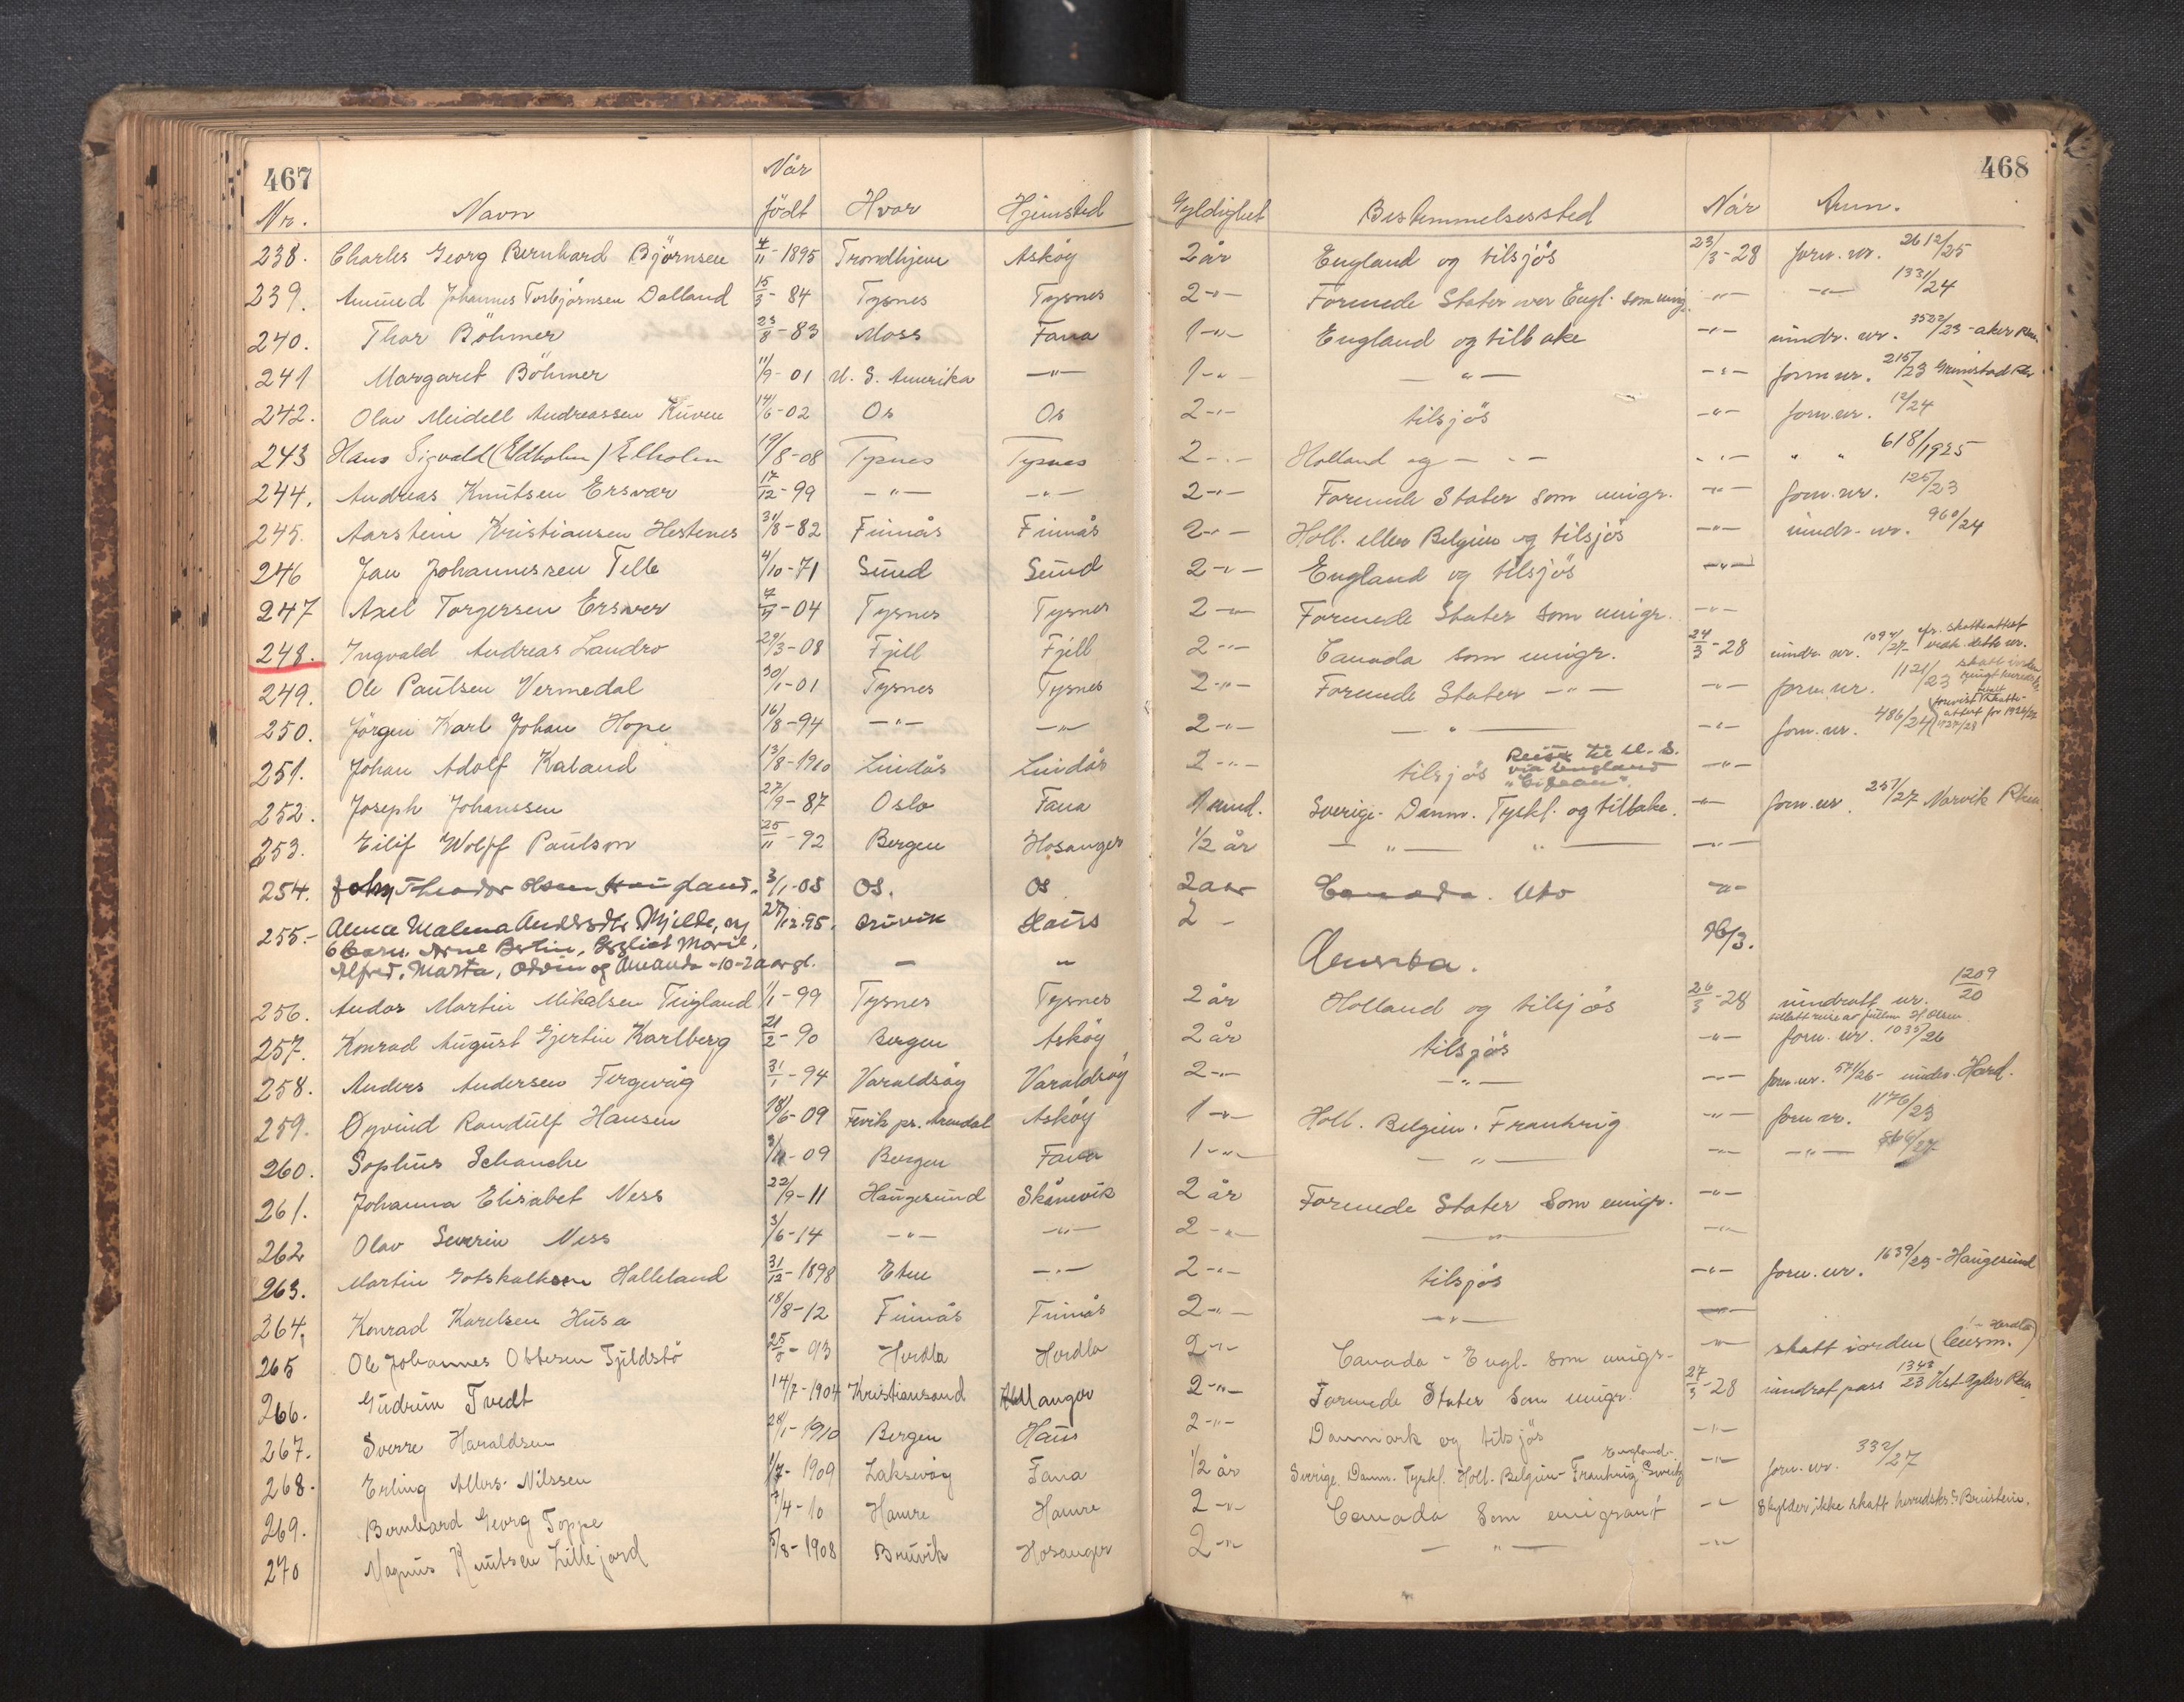 467
468
Nr. Navn Når födt Hvor Hjemsted Gyldighet Bestemmelsessted Når Anm.
238. Charles Georg Bernhard Björnsen 4/11-1895 Trondhjem Asköy 2 år England og tilsjös 23/3-28 forn. nr. 2612/25
239. Johannes Torbjörnsen Dalland 15/3-84 Tysnes Tysnes 2-"- Forenede Stater over Engl. som emig. -"- -"- 1331/24
240. Thor Böhmer 23/8-83 Moss Fana 1-"- England og tilbake -"- inndr. nr. 3522/23-aker
241 Margaret Böhmer 11/9-01 U. S. Amerika -"- 1-"- -"- -"- forn nr. 215/23 Grimstad
242. Olav Meidell Andreassen Kuven 14/6-02 Os Os 2-"- tilsjös -"- forn. nr. 12/24
243 Hans Sigvald (Eldholm) Elholm 19/8-08 Tysnes Tysnes 2-"- Holland og -"- -"- " " 618/1925
244. Andreas Knutsen Ersvær 17/12-99 -"- -"- 2-"- Forenede Stater som emigr. -"- forn. nr. 125/23
245. Aarstein Kristiansen Hestenes 31/8-82 Finnås Finnås 2-"- Holl. eller Belgien og tilsjös -"- inndr. nr. 960/24
246 Jan Johannessen Telle 4/10-71 Sund Sund 2-"- England og tilsjös -"-
247 Axel Torgersen Ersvær -04 Tysnes Tysnes 2-"- Forenede Stater som emigr. -"-
248. Ingvald Andreas Landro 29/3-08 Fjell Fjell 2-"- Canada som emigr. 24/3-28 inndr. nr. skatteattest vedk. dette nr.
249. Ole Paulsen Vermedal 30/1-01 Tysnes Tysnes 2-"- Forenede Stater -"- -"- forn. nr. 1121/23
250. Jörgen Karl Johan Hope 16/8-94 -"- -"- 2-"- -"- -"- forn. nr. 486/24
251. Johan Adolf Kaland 13/8-1910 Lindås Lindås 2-"- tilsjös Reise til U.S. via England -"-
252. Joseph Johanssen 27/9-87 Oslo Fana 1 mnd. Sverige-Danm. Tyskl. og tilbake. -"- forn. nr. 257/27 Narvik
253. Eilif Wolff Paulson 25/11-92 Bergen Hosanger 1/2 år -"- " -"-
254. John Theodor Olsen 3/1-05 Os. Os 2 aar Canada. -"-
255.- Anna Malena Andersdtr Mjelde, og 27/12.95. Bruvik Haus 2 - Amerika. 26/3.
6 barn, Arne Bertin, Marie,
Alfred, Marta, Odvin og Amanda -10-2 aar gl. - "
256. Andor Martin Mikalsen Teigland 1/1-99 Tysnes Tysnes 2 år Holland og tilsjös 26/3-28 inndratt nr. 1209/20
257. Konrad August Gjertin Karlberg 21/2-90 Bergen Asköy 2 år tilsjös -"- forn. nr. 1035/26
258. Anders Andersen Fergevåg 31/1-94 Varaldsöy Varaldsöy 2-"- -"- -"- forn. nr. 571/26- Hord.
259. Öyvind Randulf Hansen 18/6-09 Fevik pr. Arendal Asköy 1-"- Holl. Belgien. Frankrig -"- forn nr. 1176/23
260. Sophus Schanche -09 Bergen Fana 1-"- -"- -"- -"-
261. Johanna Elisabet Ness 22/9-11 Haugesund Skånevik 2 år Forenede Stater som emigr. -"-
262 Olav Severin Ness 3/6-14 -"- -"- 2-"- -"- -"-
263. Martin Gotskalksen Halleland 31/12-1898 Etne -"- 2-"- tilsjös -"- forn. nr. 1639/23-Haugesund
264. Konrad Karelsen Husa 18/8-12 Finnås Finnås 2-"- -"- -"-
265 Ole Johannes Obbesen Tjeldstö -93 Herdla Herdla 2-"- Canada - Engl. som emigr. -"- skatt iorden (lensm. i Herdla)
266. Gudrun Tvedt 14/7-1904 Kristiansand 2-"- Forenede Stater som emigr. 27/3-28 inndrat pass 1343/23
267. Sverre Haraldsen -1910 Bergen Haus 2-"- Danmark og tilsjös -"-
268. Erling Nilssen 1/7-1909 Laksevåg Fana 1/2 år Sverige. Danm. Tyskl. Holl. Belgien-Frankrig England. Sveits -"- forn. nr. 332/27
269. Bernhard Georg Toppe 7/4-10 Hamre Hamre 2-"- Canada som emigrant -"- Skylder ikke skatt
270 Magnus Knutsen Lillejord 5/8-1908 Bruvik Hosanger 2-"- -"- -"-